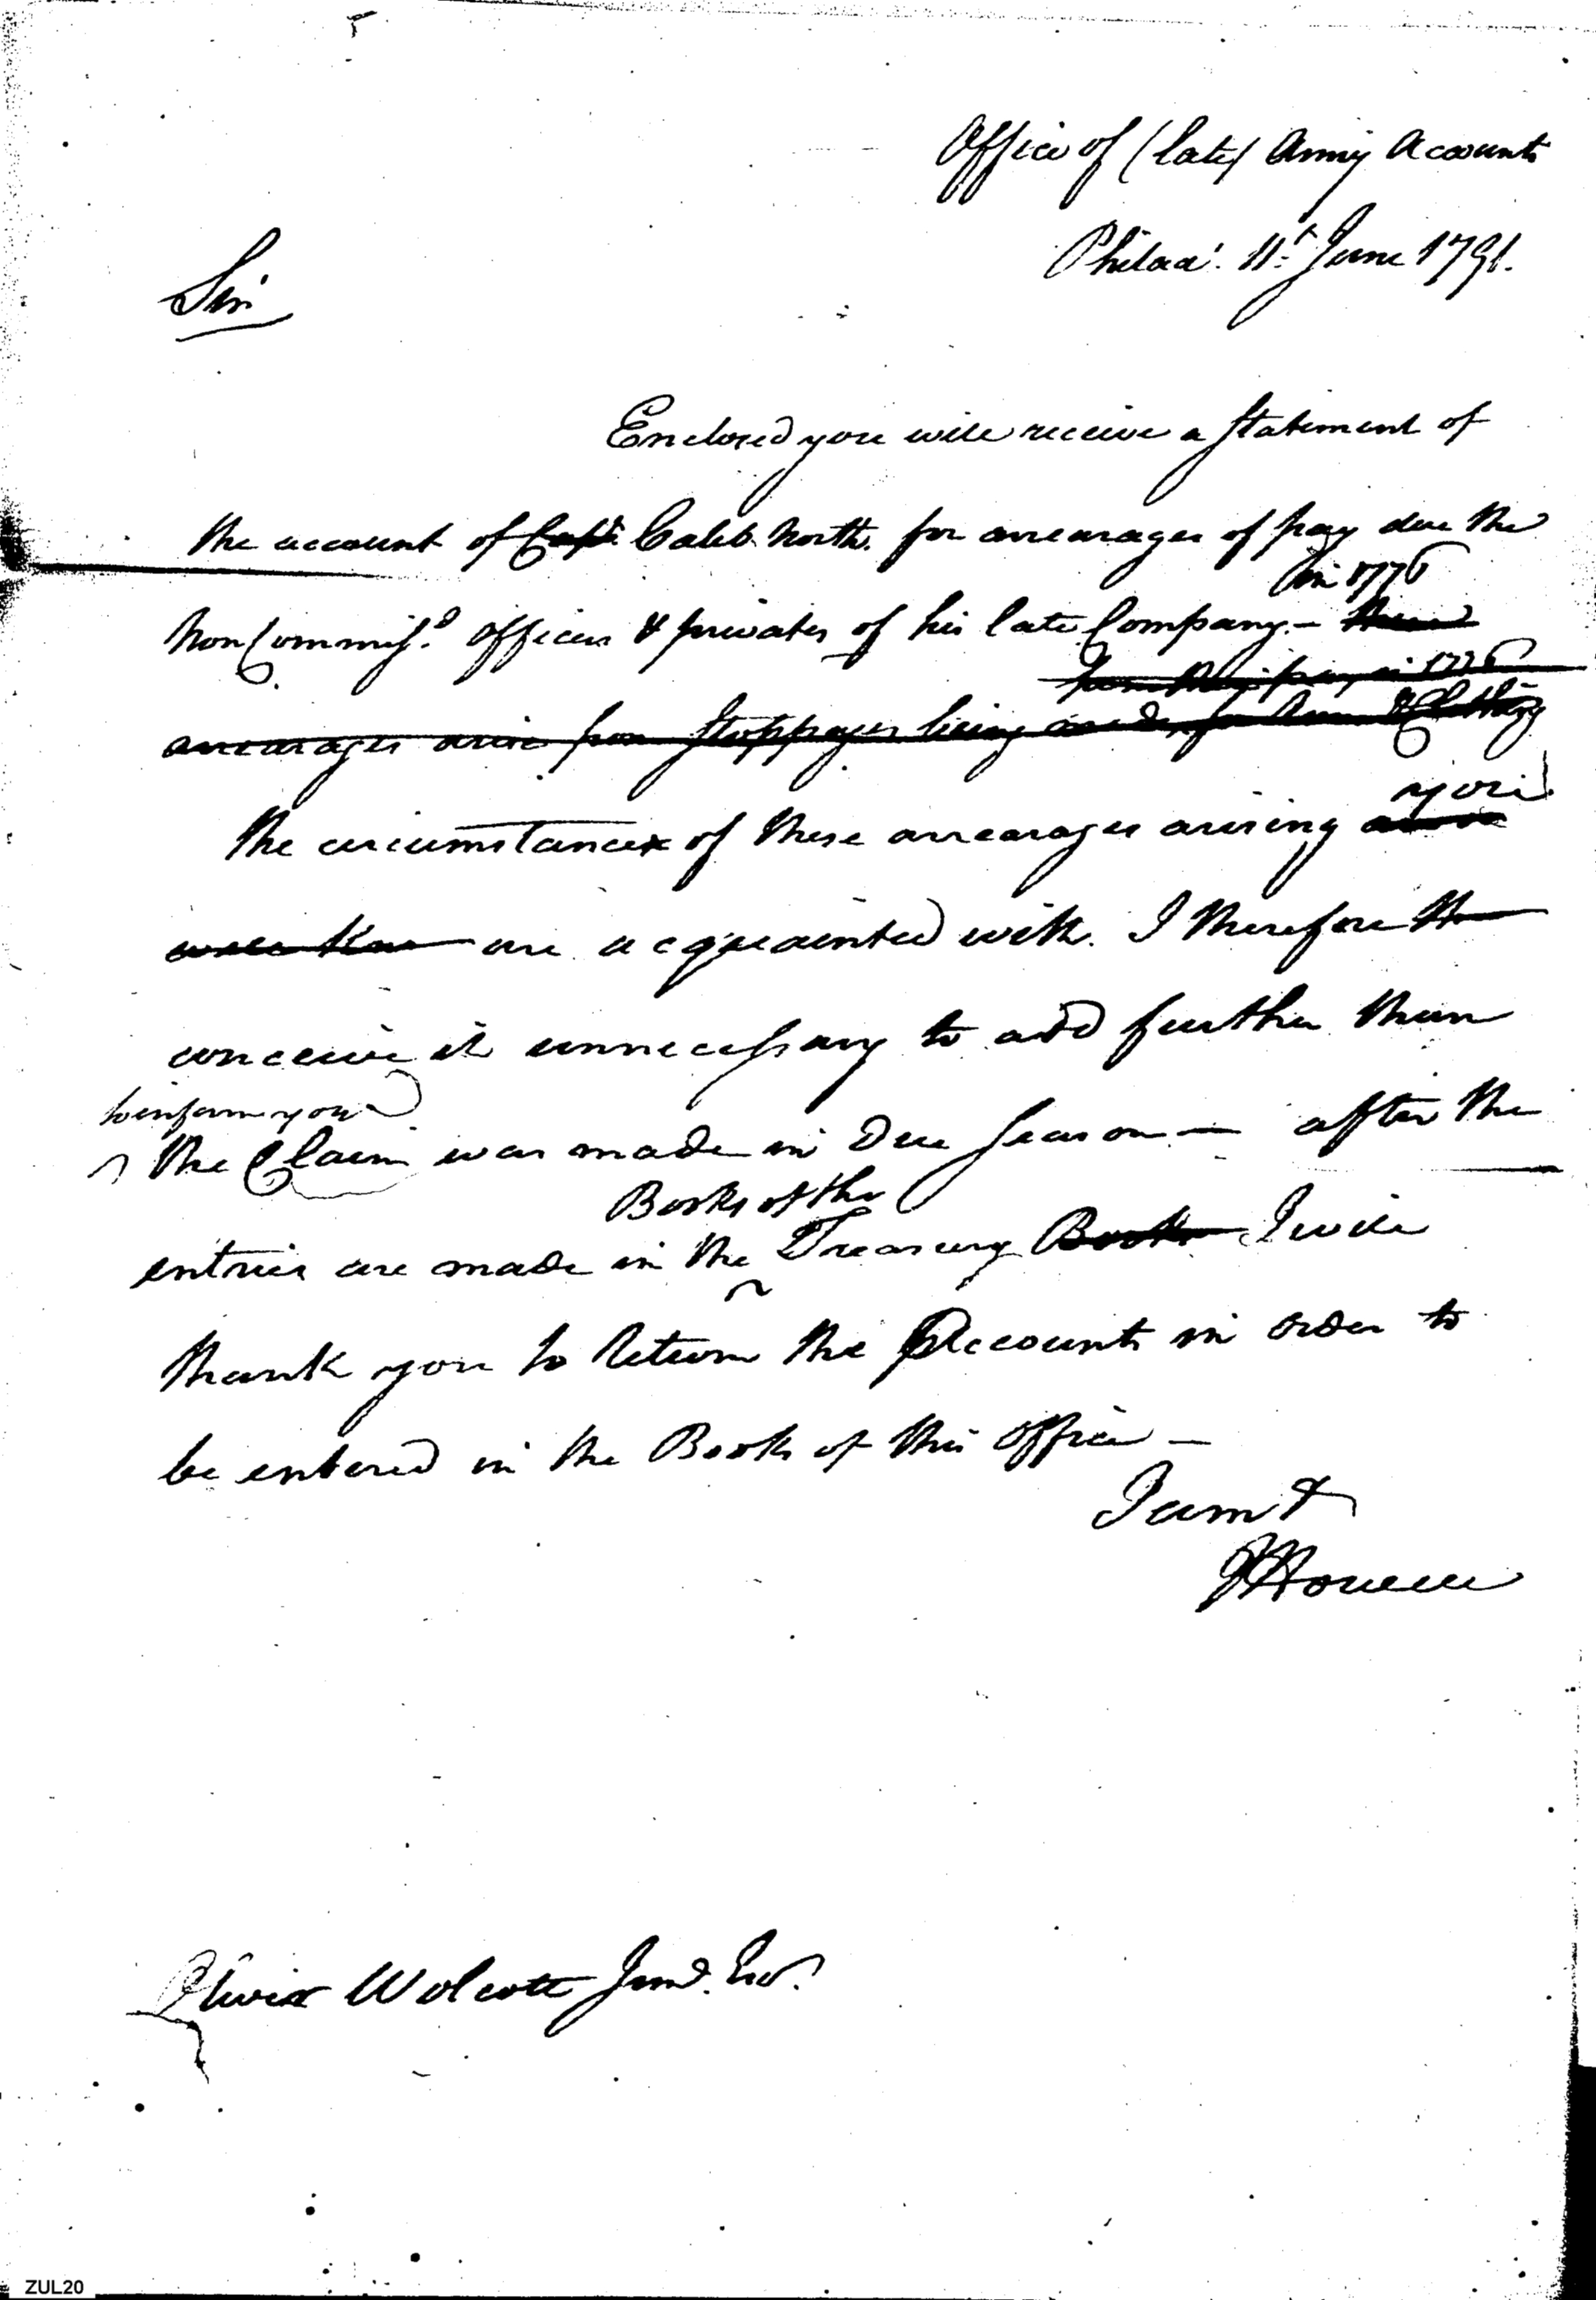 Office of (late) Army Accounts
Philada. 11th June 1791.
Sir
Enclosed you will receive a Statement of
the account of Capt Caleb North. for arrearages of pay due the
in 1776
Non Commisd. Officers & privates of his late Company. – these
from their pay in 1776
arrearages arise from Stoppages being made for Arms & Clothing
you
The circumstances of these arrearages arising
well know are acquainted with. I therefore th
conceive it unnecessary to add further than
to inform you
the Claim was made in due Season — after the
Books of the
entries are made in the Treasury Books I will
thank you to return the Accounts in order to
be entered in the Books of this Office —
I am &
J Howell
Oliver Wolcott Junr. Esqr.
ZUL20